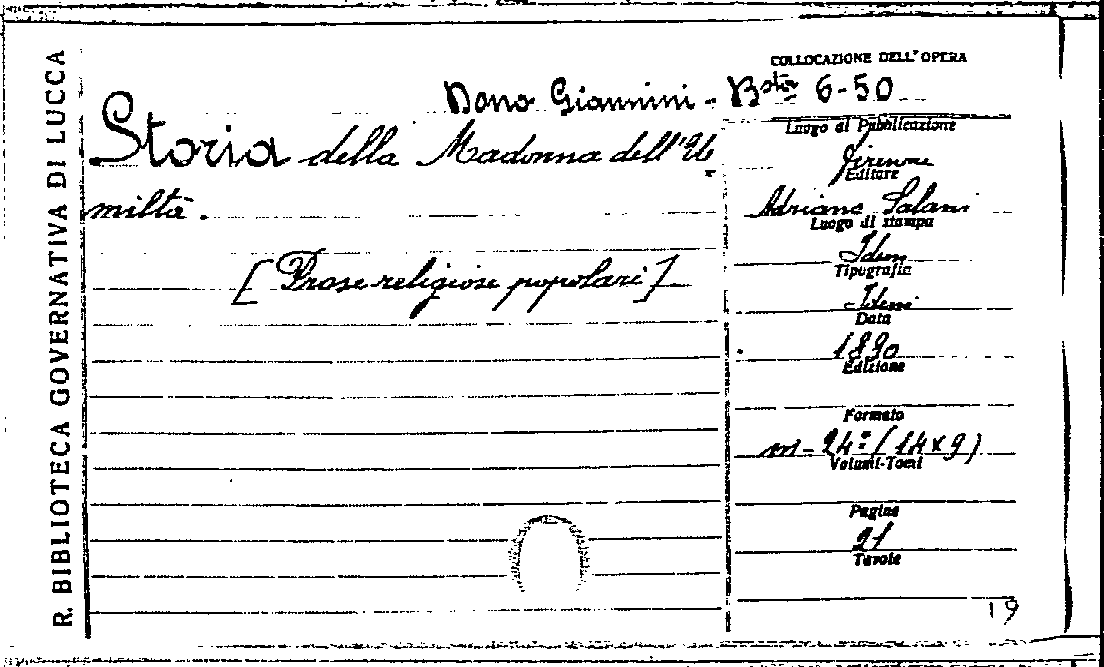 R. BIBLIOTECA GOVERNATIVA DI LUCCA
COLLOCAZIONE DELL'OPERA
Dono Giannini - Bsta 6-50
Storia della Madonna dell'U
miltà.
[Prose religiose popolari]
Luogo di Pubblicazione
Firenze
Editore
Adriano Salani
Luogo di stampa
Idem
Tipografia
Idem
Data
1890
Edizione
Formato
in-24º (14x9)
Volumi-Tomi
Pagine
21
Tavole
19